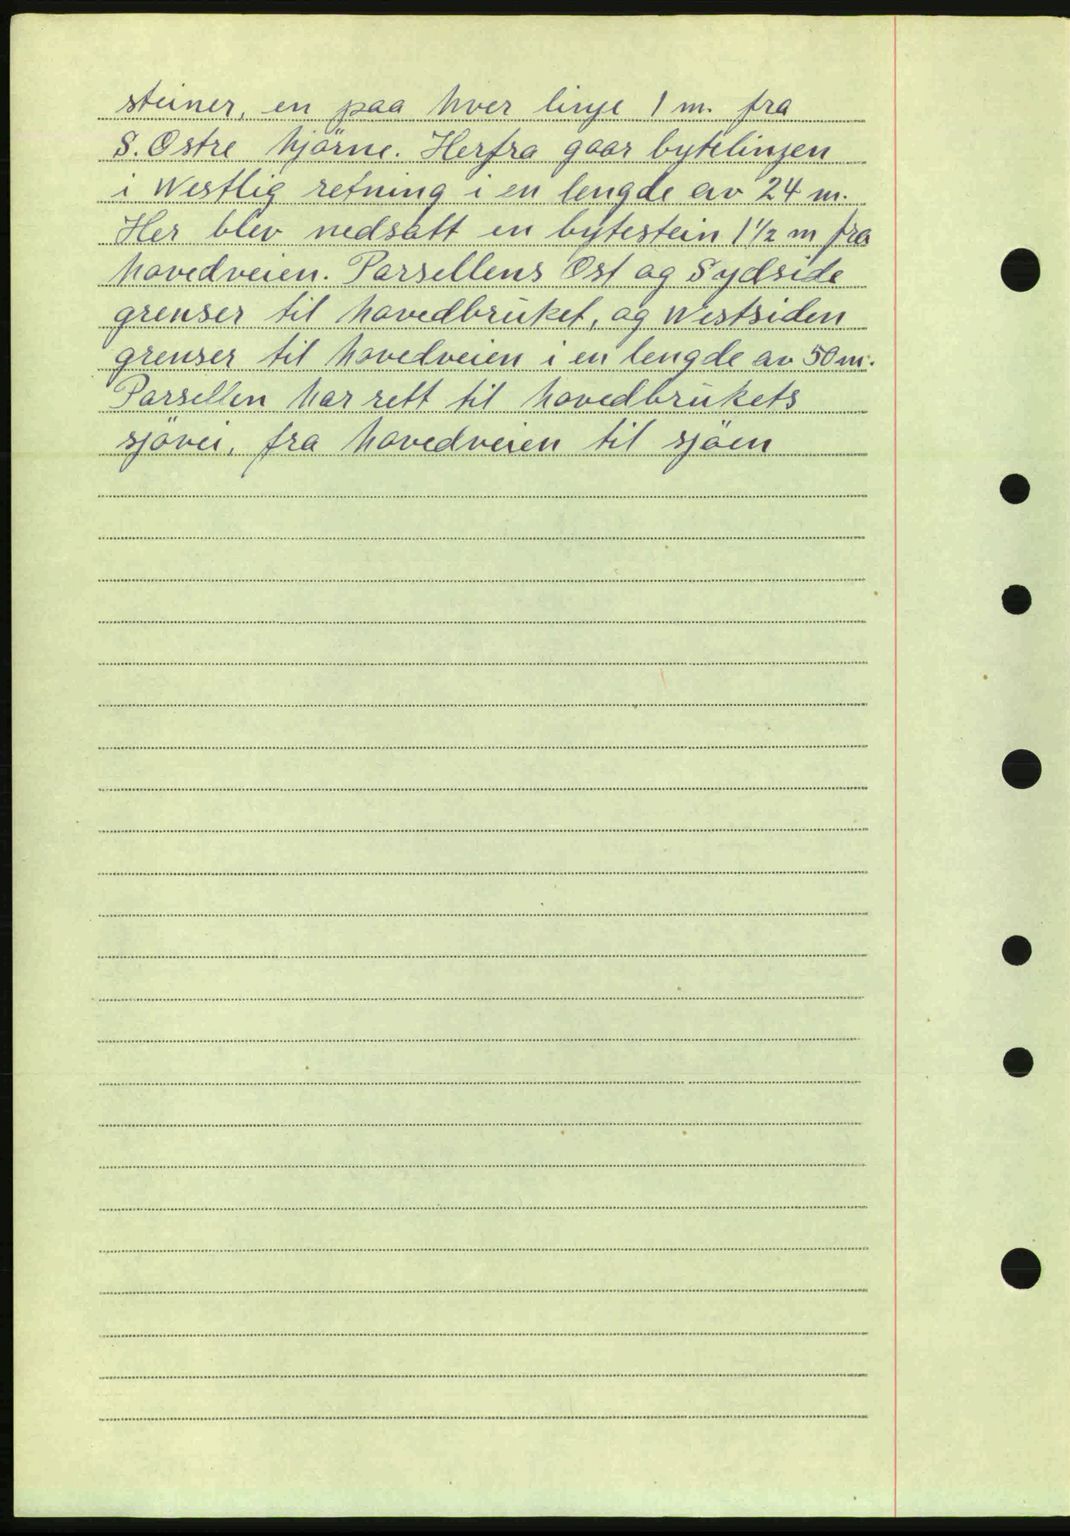 steiner, en paa hver linje 1 m. fra
S. Östre hjörne. Herfra gaar bytelinjen
i Westlig retning i en lengde av 24 m.
Her blev nedsatt en bytestein 1½ m fra
hovedveien. Parsellens Öst og Sydside
grenser til hovedbruket, og Westsiden
grenser til hovedveien i en lengde av 50 m.
Parsellen har rett til hovedbrukets
sjövei, fra hovedveien til sjöen